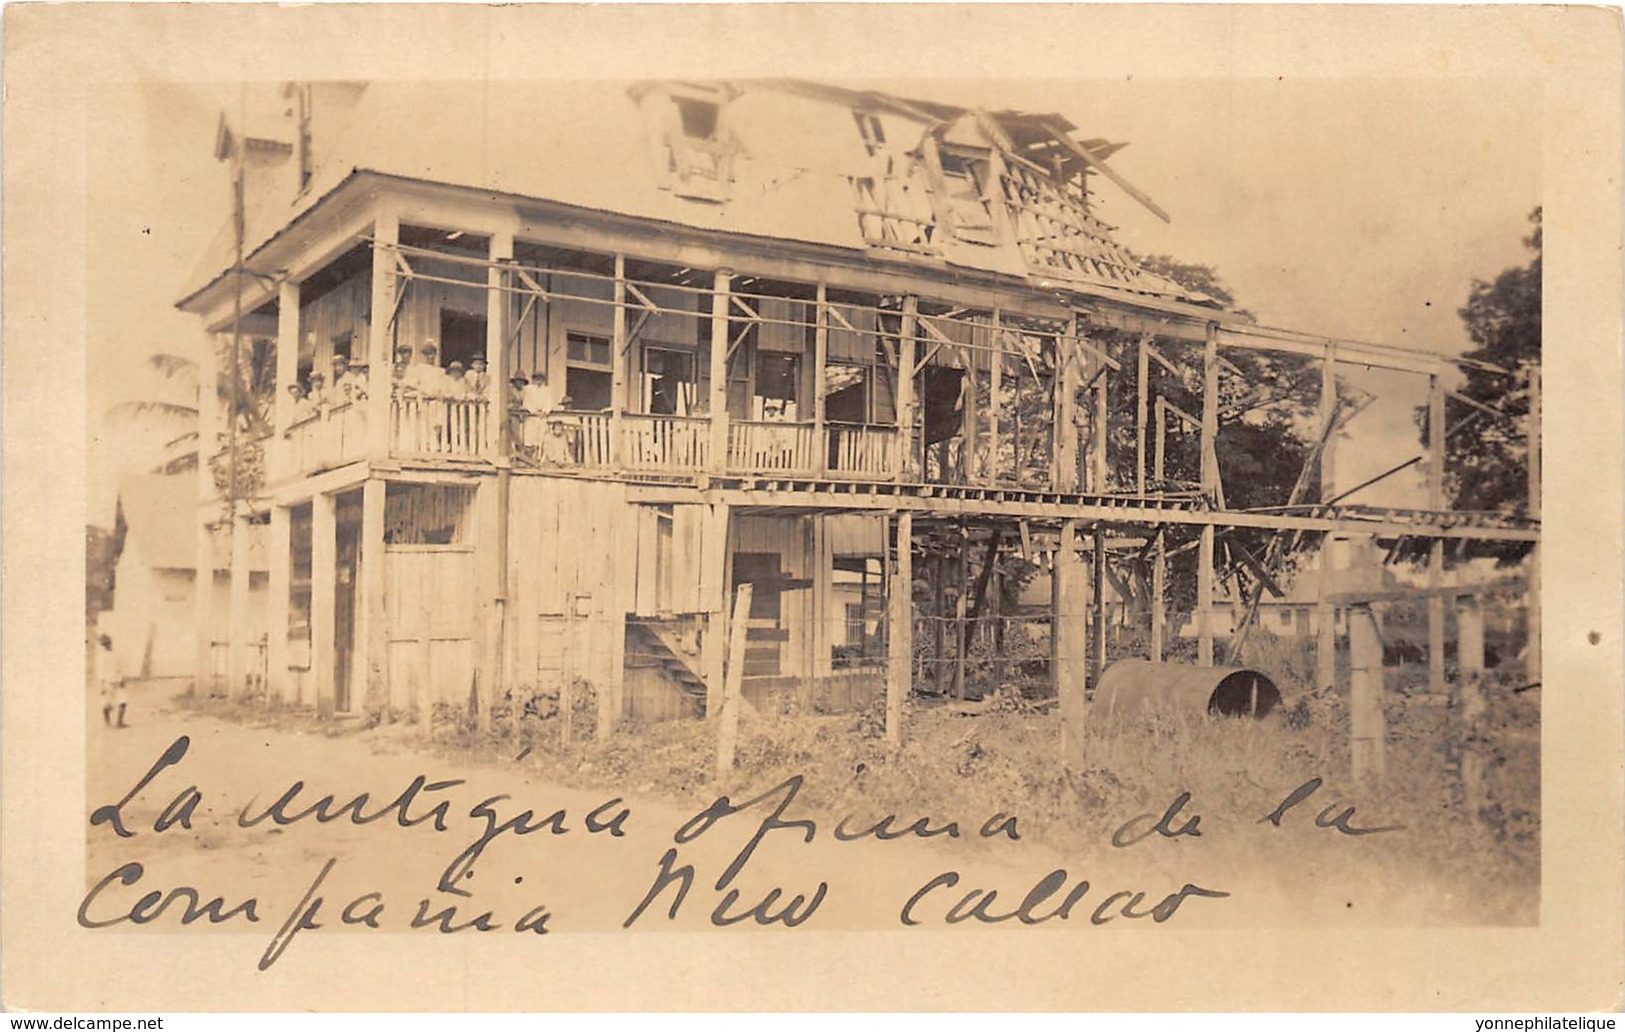 La antigua oficina de la
Compañia New Callao
www.delcampe.net
yonnephilatelique